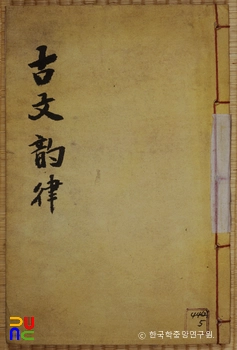 古文韵律
440
5
© 한국학중앙연구원